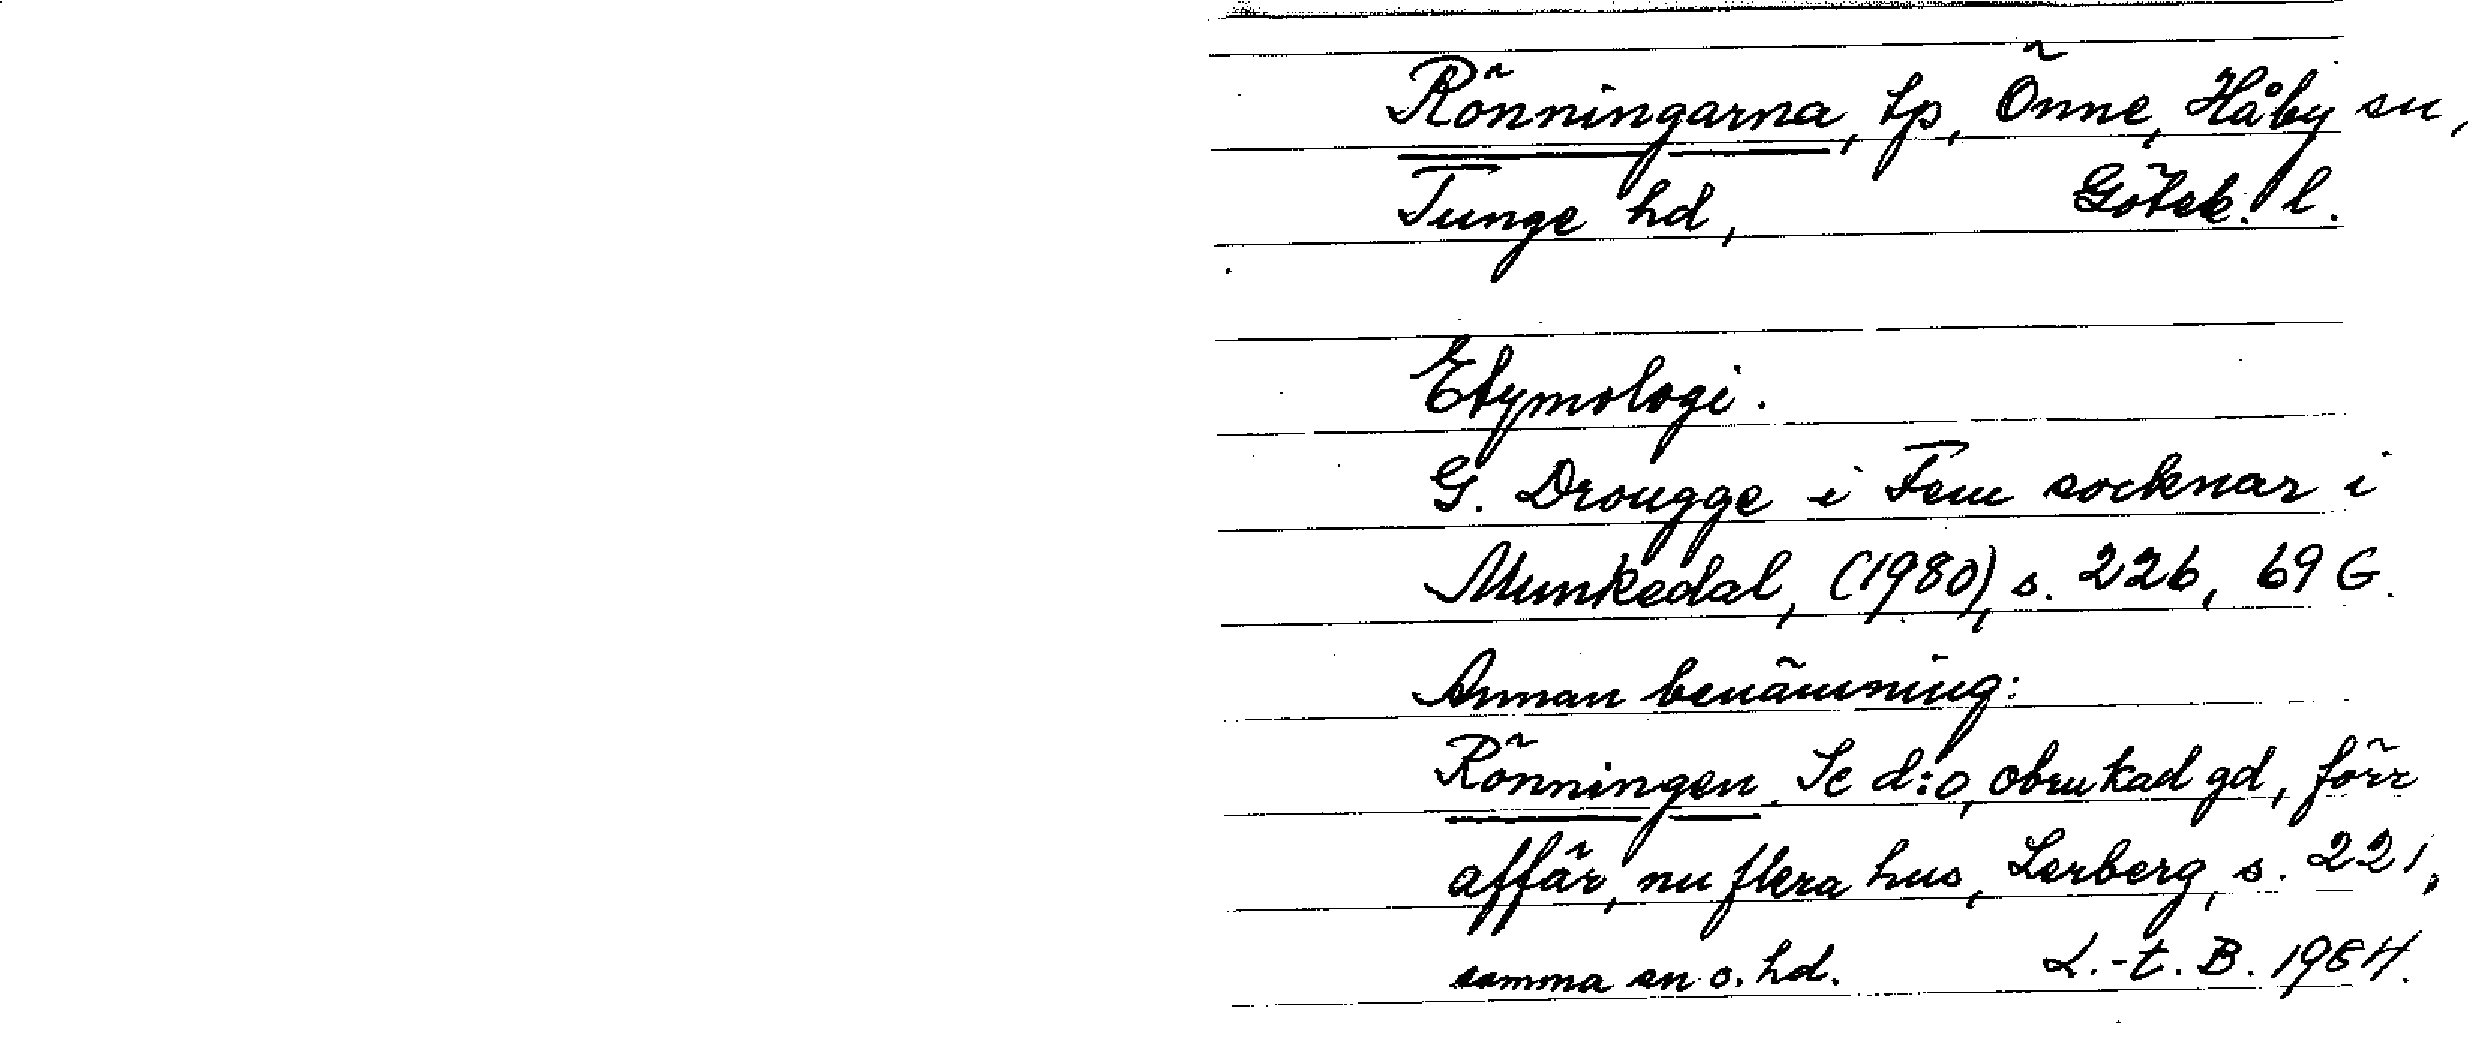 Rönningarna, tp, Önne, Håby sn,
Tunge hd, Götek. l.
Etymologi.
G. Drougge i Fem socknar i
Munkedal, (1980), s. 226, 69 G.
Annan benämning:
Rönningen. Se d:o, obrukad gd, förr
affär, nu flera hus, Lerberg, s. 221,
samma sn o. hd. L.-t. B. 1984.